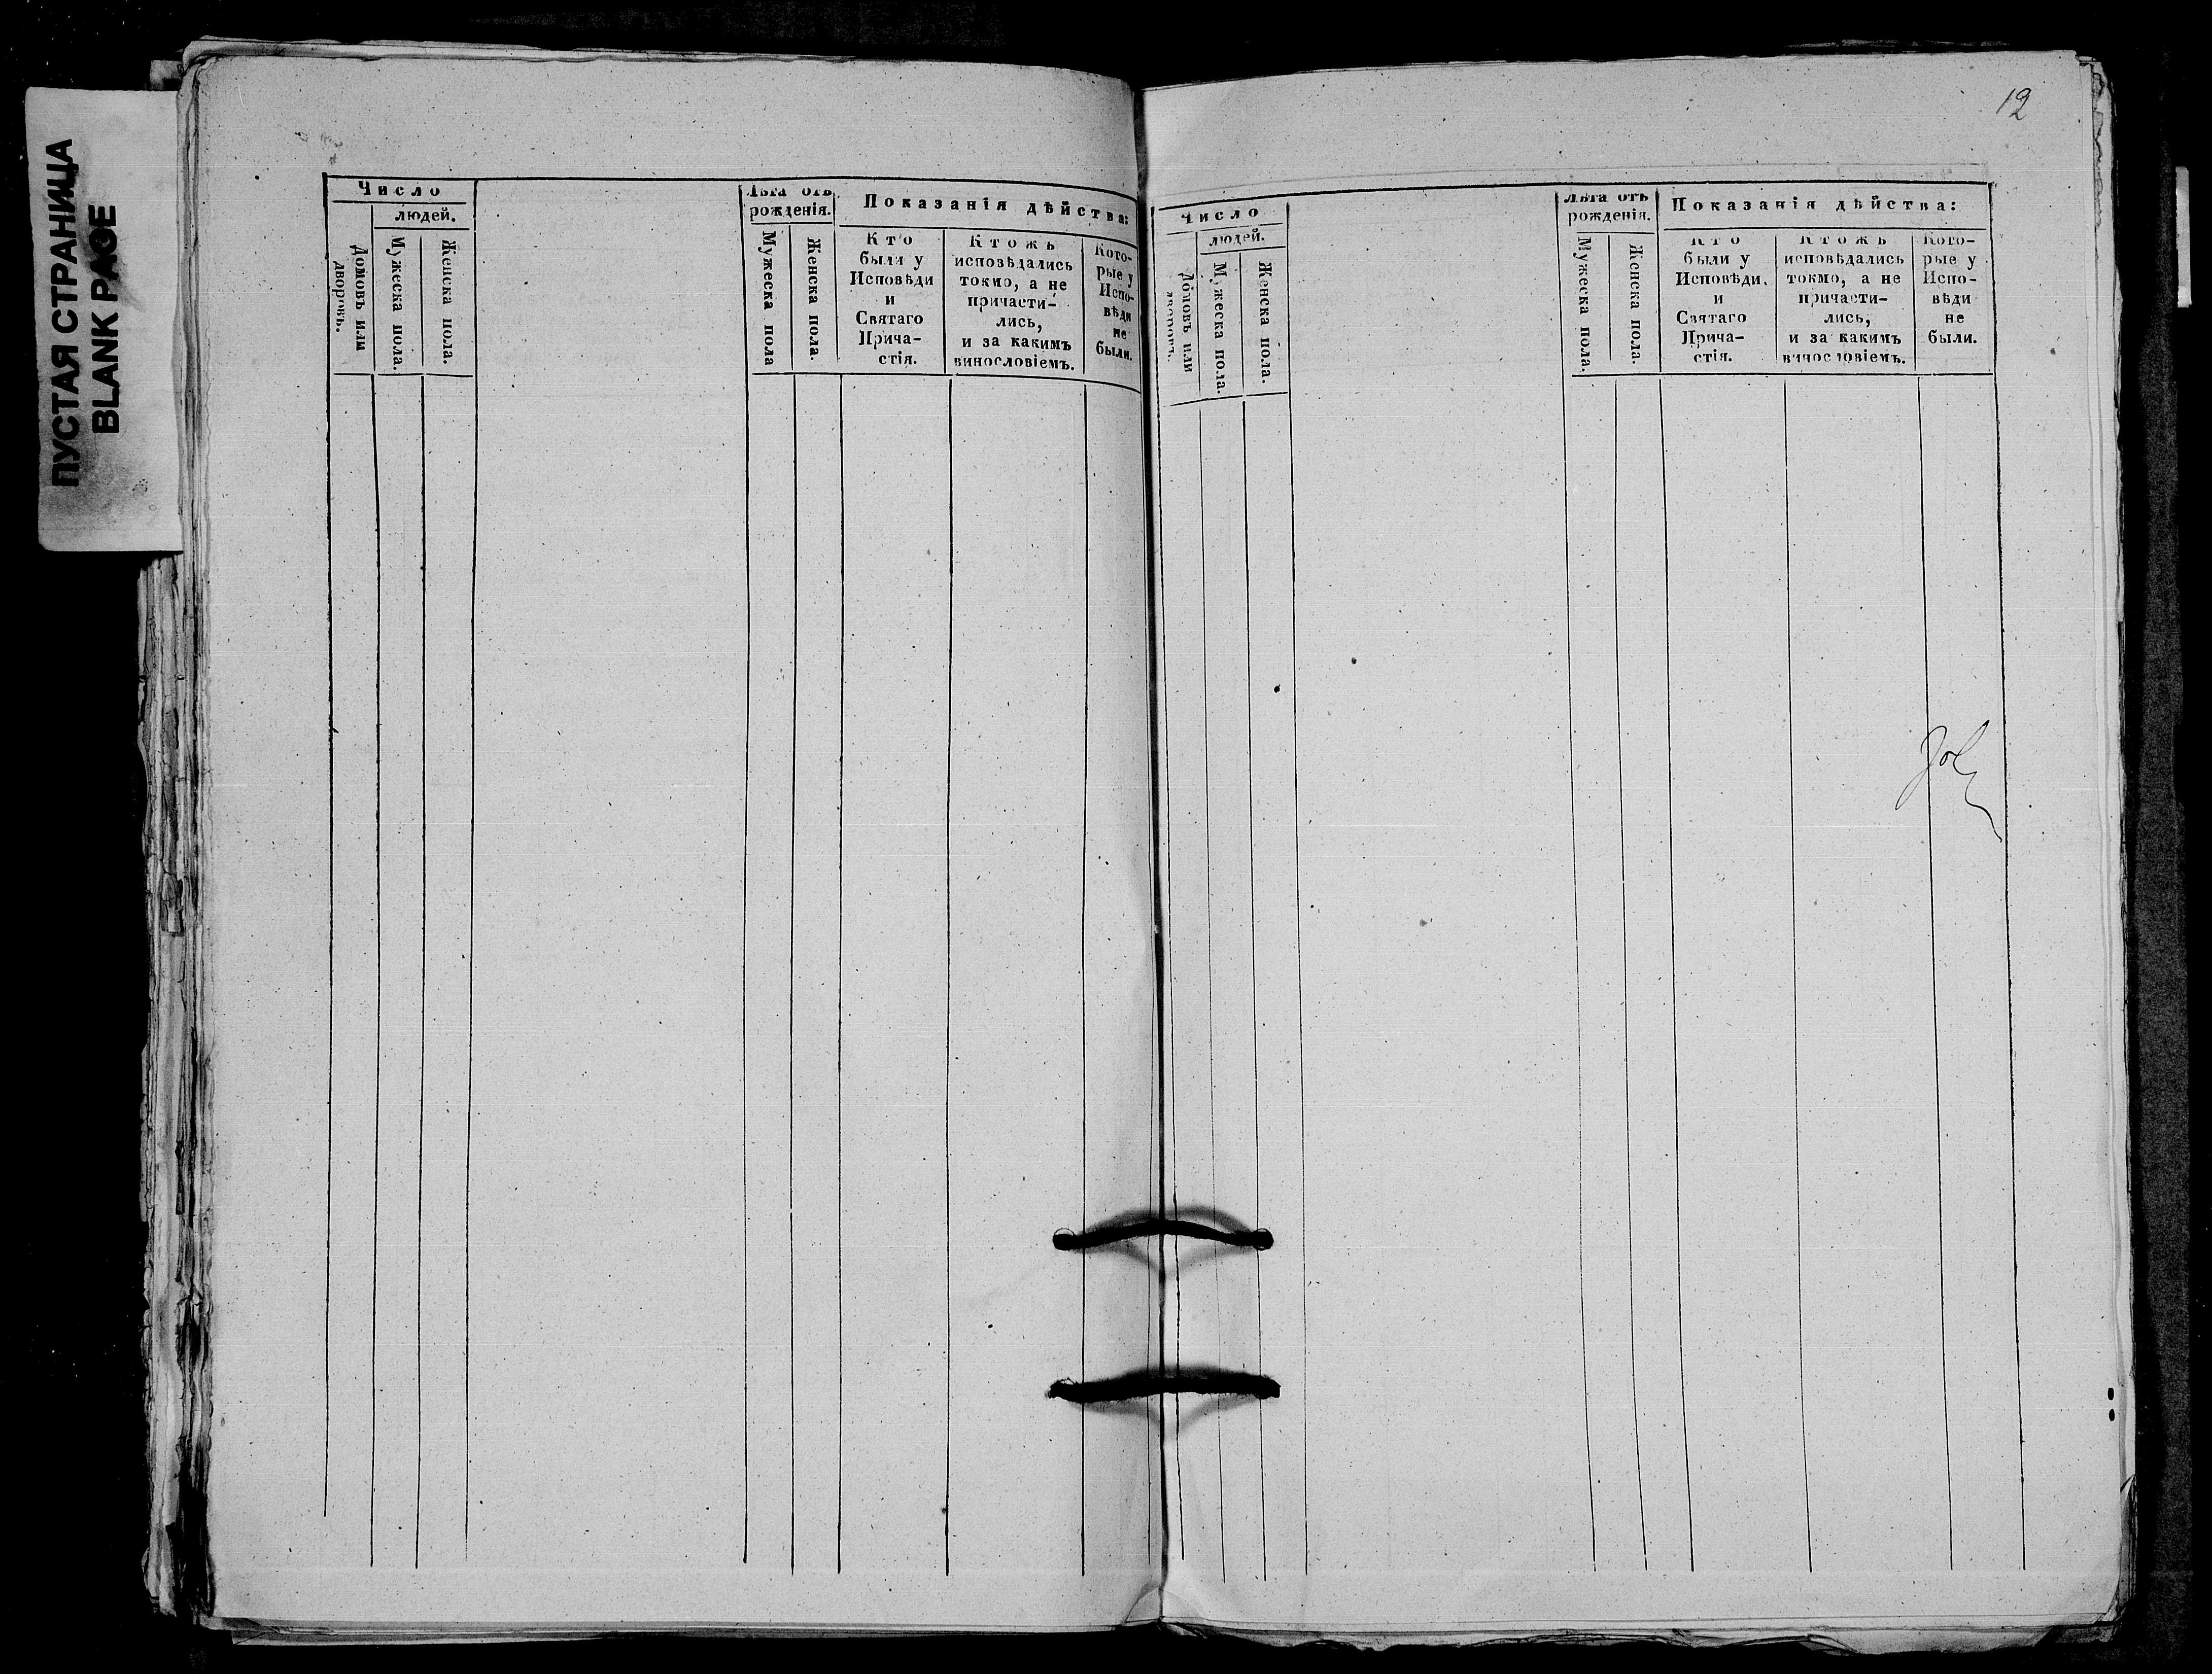 ПУСТАЯ СТРАНИЦА
BLANK PAGE
Число
людей.
Домовъ или
дворовъ.
Мужеска пола.
Женска пола.
Лѣта отъ
рожденія.
Мужеска пола
Женска пола.
Показанія дѣйства:
Кто
были у
Исповѣди
и
Святаго
Прича-
стія.
Ктожъ
исповѣдались
токмо, а не
причасти-
лись,
и за какимъ
винословіемъ.
Кото-
рые у
Испо-
вѣди
не
были.
12
Число
людей.
Домовъ или
дворовъ.
Мужеска пола.
Женска пола.
Лѣта отъ
рожденія.
Мужеска пола.
Женска пола.
Показанія дѣйства:
Кто
были у
Исповѣди.
и
Святаго
Прича-
стія.
Ктожъ
исповѣдались
токмо, а не
причасти-
лись,
и за какимъ
винословіемъ.
Кото-
рые у
Испо-
вѣди
не
были.